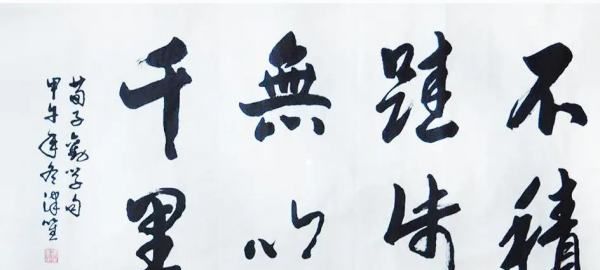 不積
跬步
無以
千里
荀子勸学句
甲午年冬